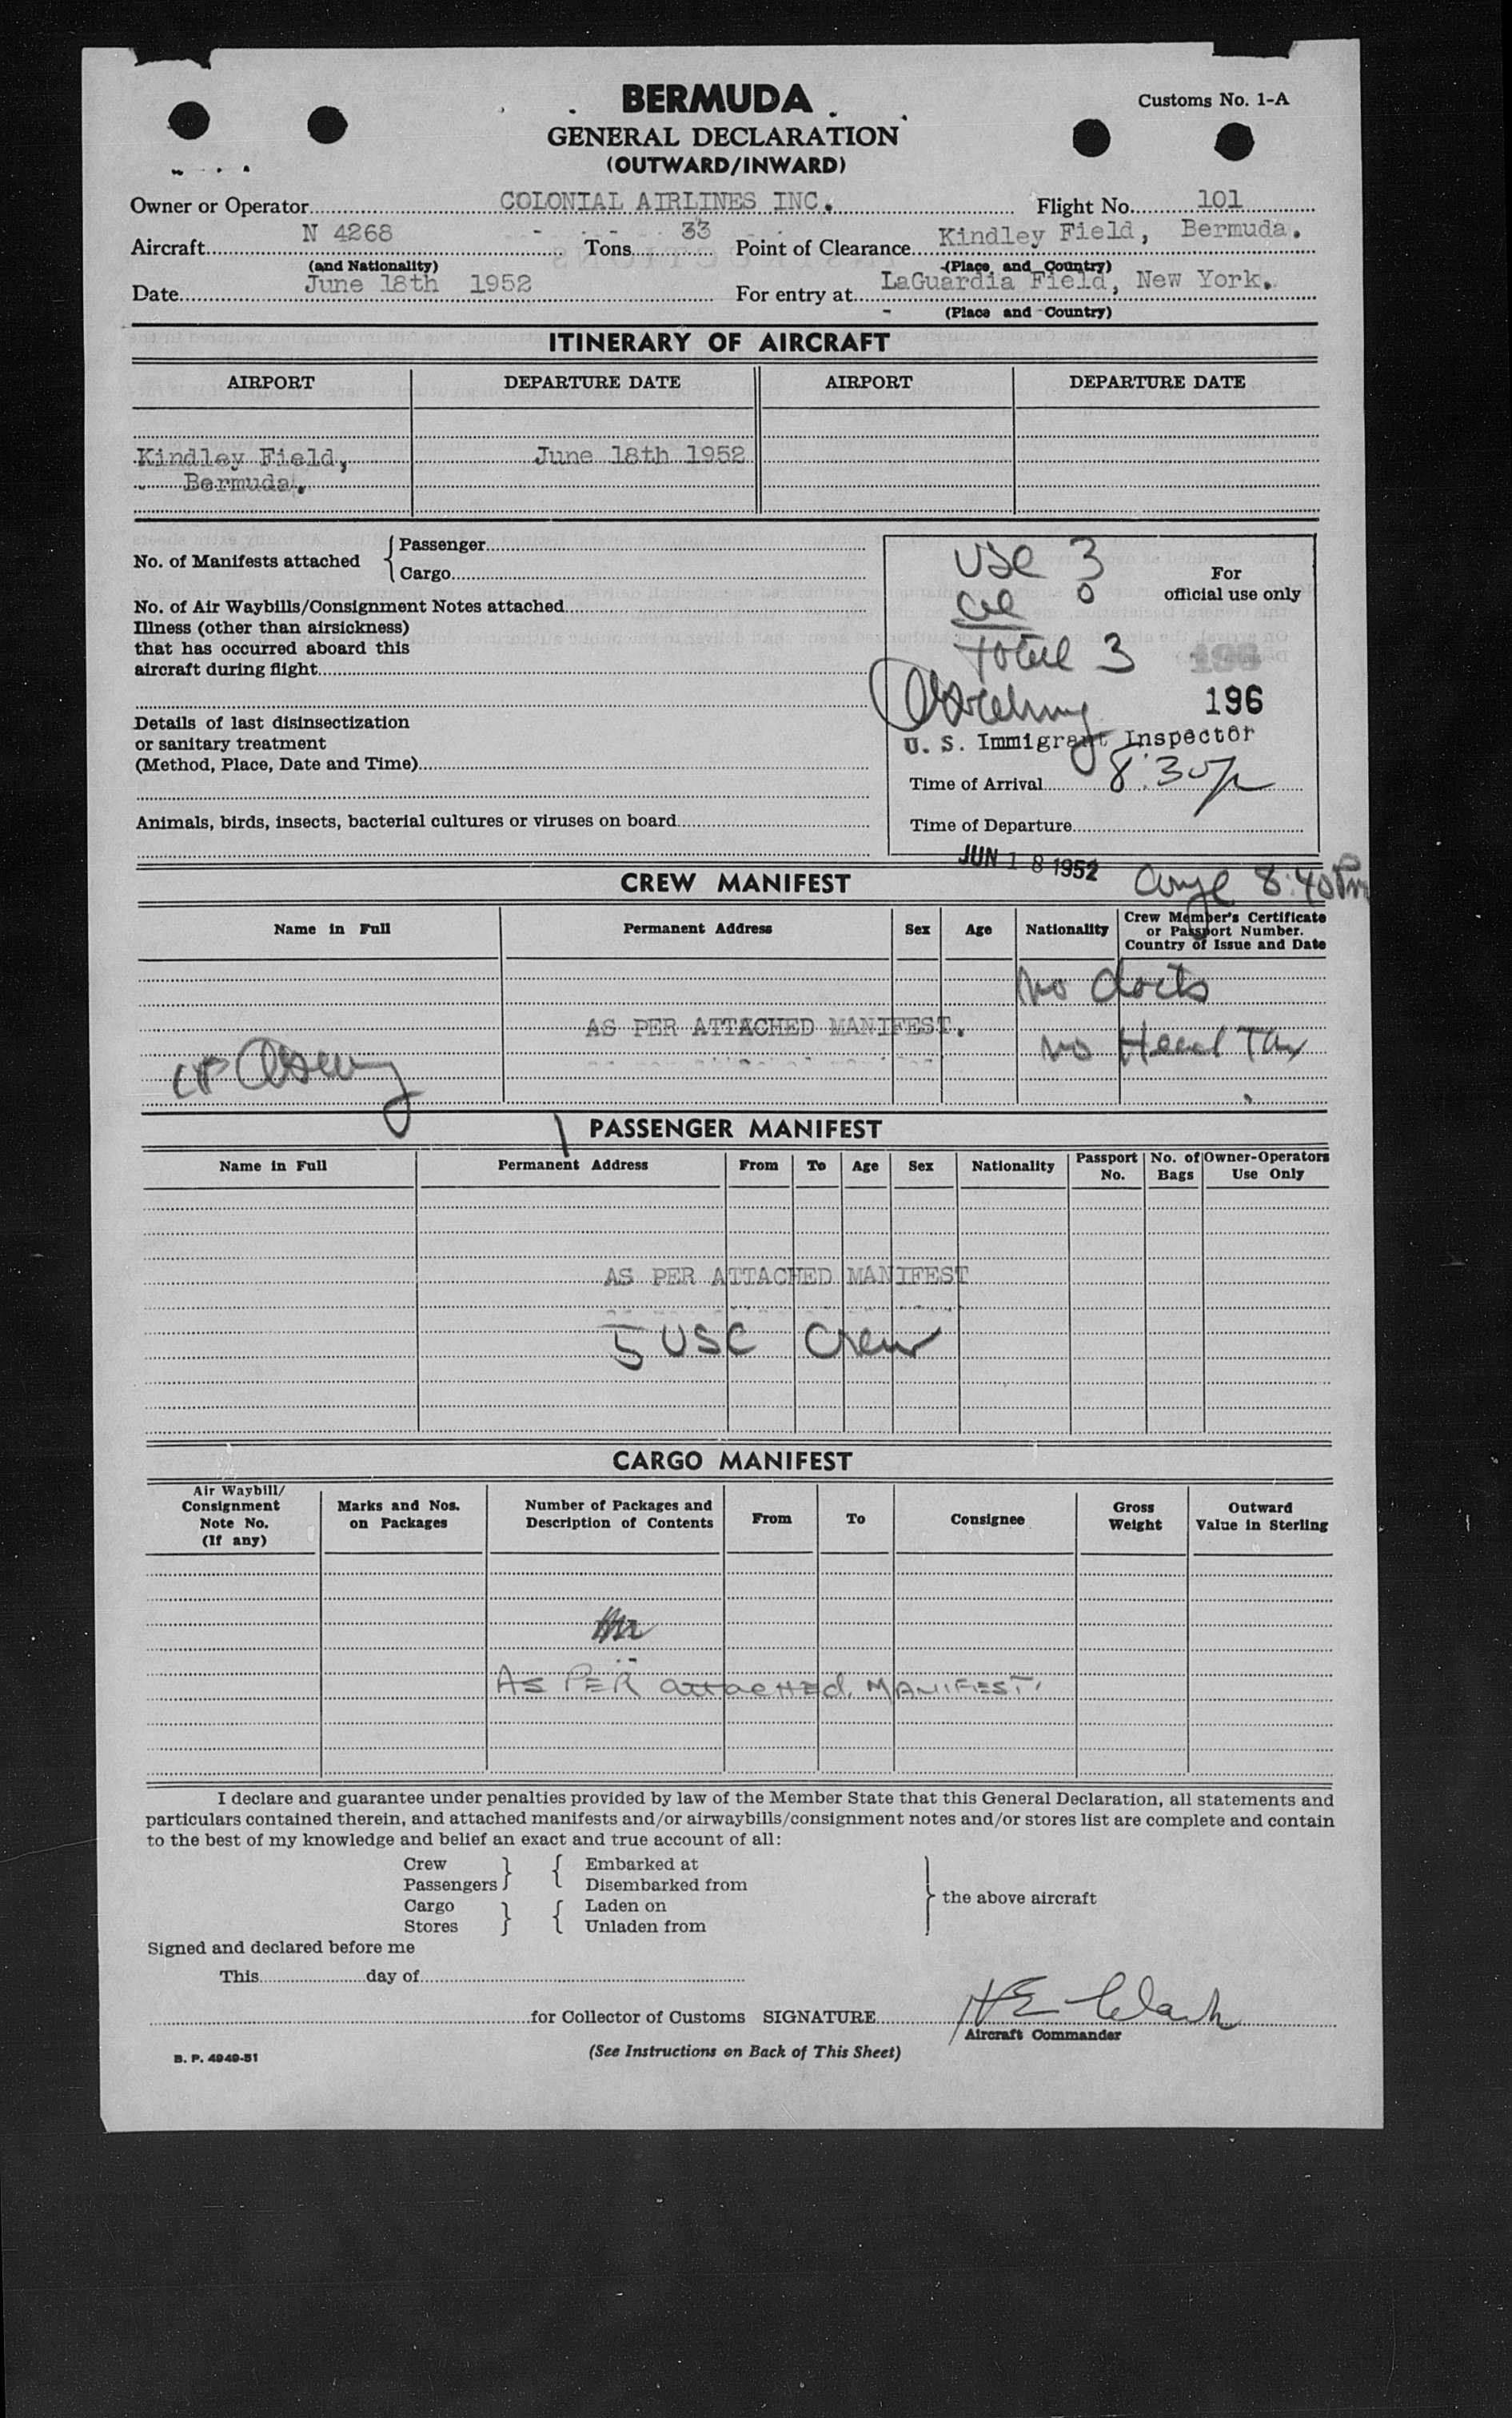 BERMUDA
Customs No. 1-A
GENERAL DECLARATION
(OUTWARD/INWARD)
Owner or Operator COLONIAL AIRLINES INC. Flight No. 101
Aircraft N 4268 Tons 33 Point of Clearance Kindley Field, Bermuda.
(and Nationality) (Place and Country)
Date June 18th 1952 For entry at LaGuardia Field, New York.
(Place and Country)
ITINERARY OF AIRCRAFT
AIRPORT DEPARTURE DATE AIRPORT DEPARTURE DATE
Kindley Field, June 18th 1952
Bermuda.
No. of Manifests attached { Passenger
Cargo
No. of Air Waybills/Consignment Notes attached
Illness (other than airsickness)
that has occurred aboard this
aircraft during flight
Details of last disinsectization
or sanitary treatment
(Method, Place, Date and Time)
Animals, birds, insects, bacterial cultures or viruses on board
USC 3
For
official use only
0
Total 3
196
U. S. Immigrant Inspector
Time of Arrival 8:30p
Time of Departure
JUN 18 1952
8:40 Pm
CREW MANIFEST
Name in Full Permanent Address Sex Age Nationality Crew Member's Certificate or Passport Number. Country of Issue and Date
No docts
AS PER ATTACHED MANIFEST.
No Head Tax
PASSENGER MANIFEST
Name in Full Permanent Address From To Age Sex Nationality Passport No. No. of Bags Owner-Operators Use Only
AS PER ATTACHED MANIFEST
5 USC Crew
CARGO MANIFEST
Air Waybill/ Consignment Note No. (If any) Marks and Nos. on Packages Number of Packages and Description of Contents From To Consignee Gross Weight Outward Value in Sterling
AS PER attacHEd MANIFEST
I declare and guarantee under penalties provided by law of the Member State that this General Declaration, all statements and
particulars contained therein, and attached manifests and/or airwaybills/consignment notes and/or stores list are complete and contain
to the best of my knowledge and belief an exact and true account of all:
Crew } { Embarked at
Passengers Disembarked from
Cargo } { Laden on
Stores Unladen from
} the above aircraft
Signed and declared before me
This day of
for Collector of Customs SIGNATURE H E Clark
Aircraft Commander
B. P. 4949-51
(See Instructions on Back of This Sheet)